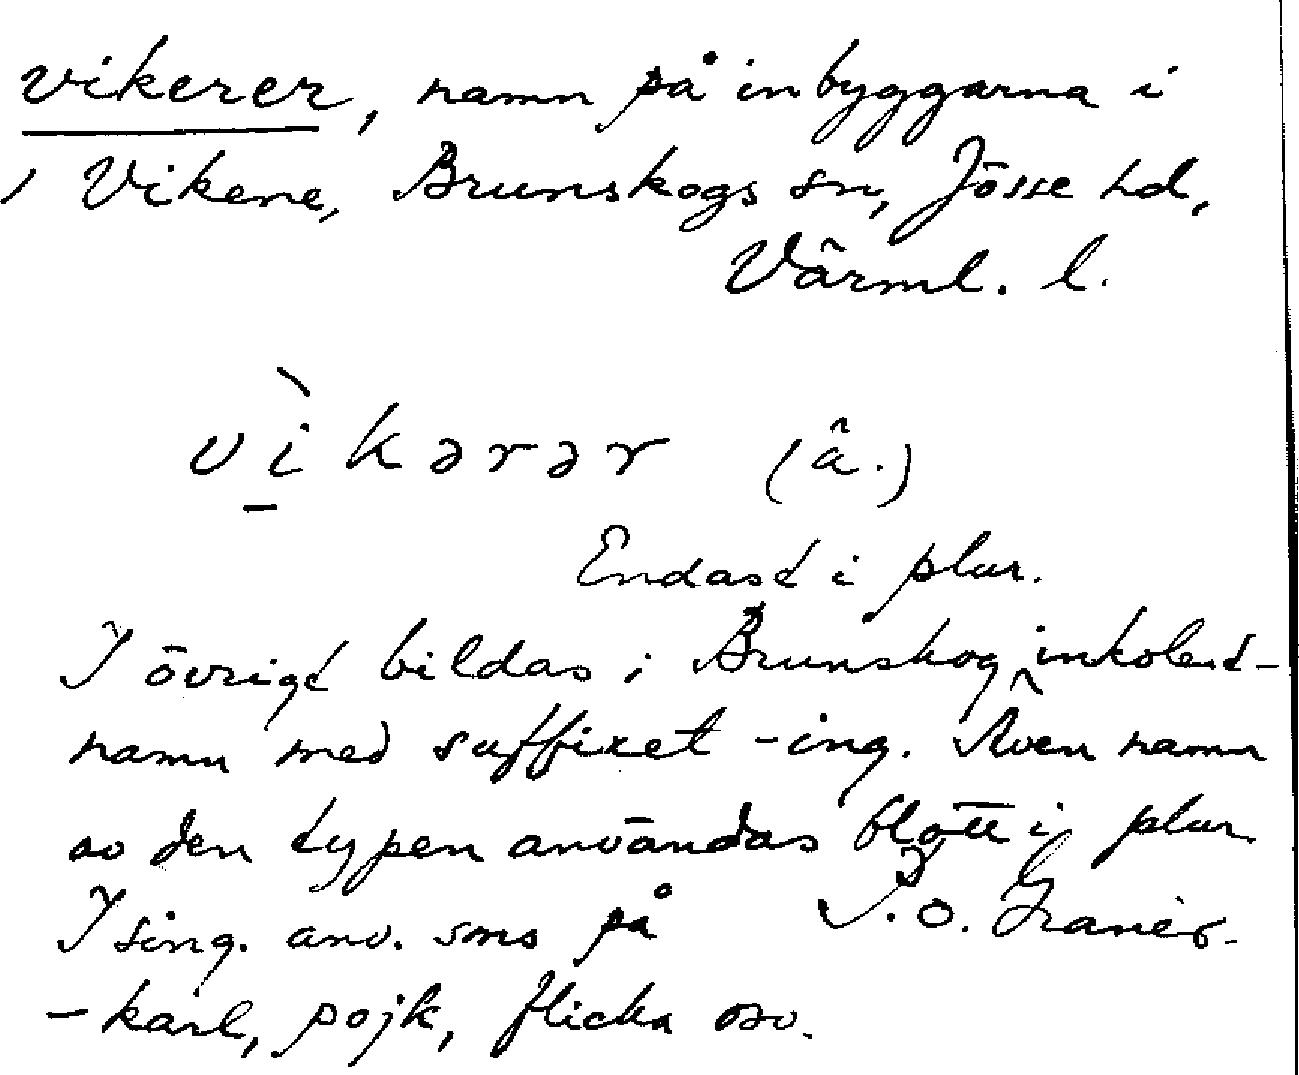 vikerer, namn på inbyggarna i
i Vikene, Brunskogs sn, Jösse hd,
Värml. l.
vìkərər (ä.)
Endast i plur.
I övrigt bildas i Brunskog inkolent-
namn med suffixet -ing. Även namn
av den typen användas blott i plur.
I sing. anv. sms på
-karl, pojk, flicka osv.